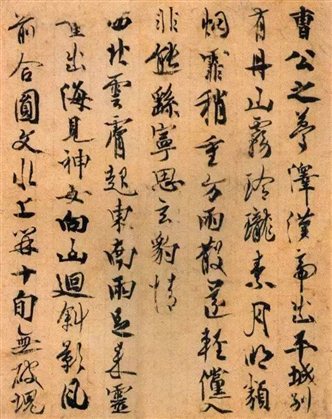 曹公之夢澤漢帝出平城別
有丹山霧玲瓏素月明類
烟霏稍重方雨散還輕儻入
非熊繇寧思玄豹情
西北雲膚起東南雨足來靈
童出海見神女向山迴斜影風
前合圓文水上開十旬無破塊